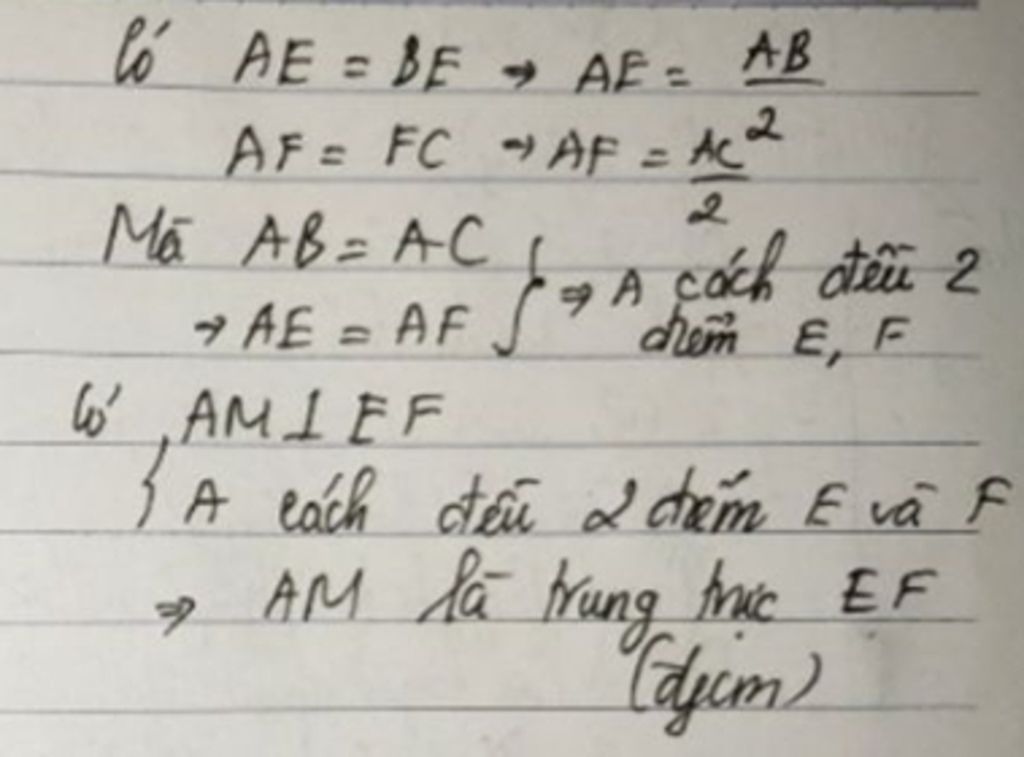 Có AE = BE → AE = AB/2
AF = FC → AF = AC/2
Mà AB = AC
→ AE = AF } ⇒ A cách đều 2 điểm E, F
Có { AM ⊥ EF
A cách đều 2 điểm E và F
⇒ AM là trung trực EF
(đpcm)